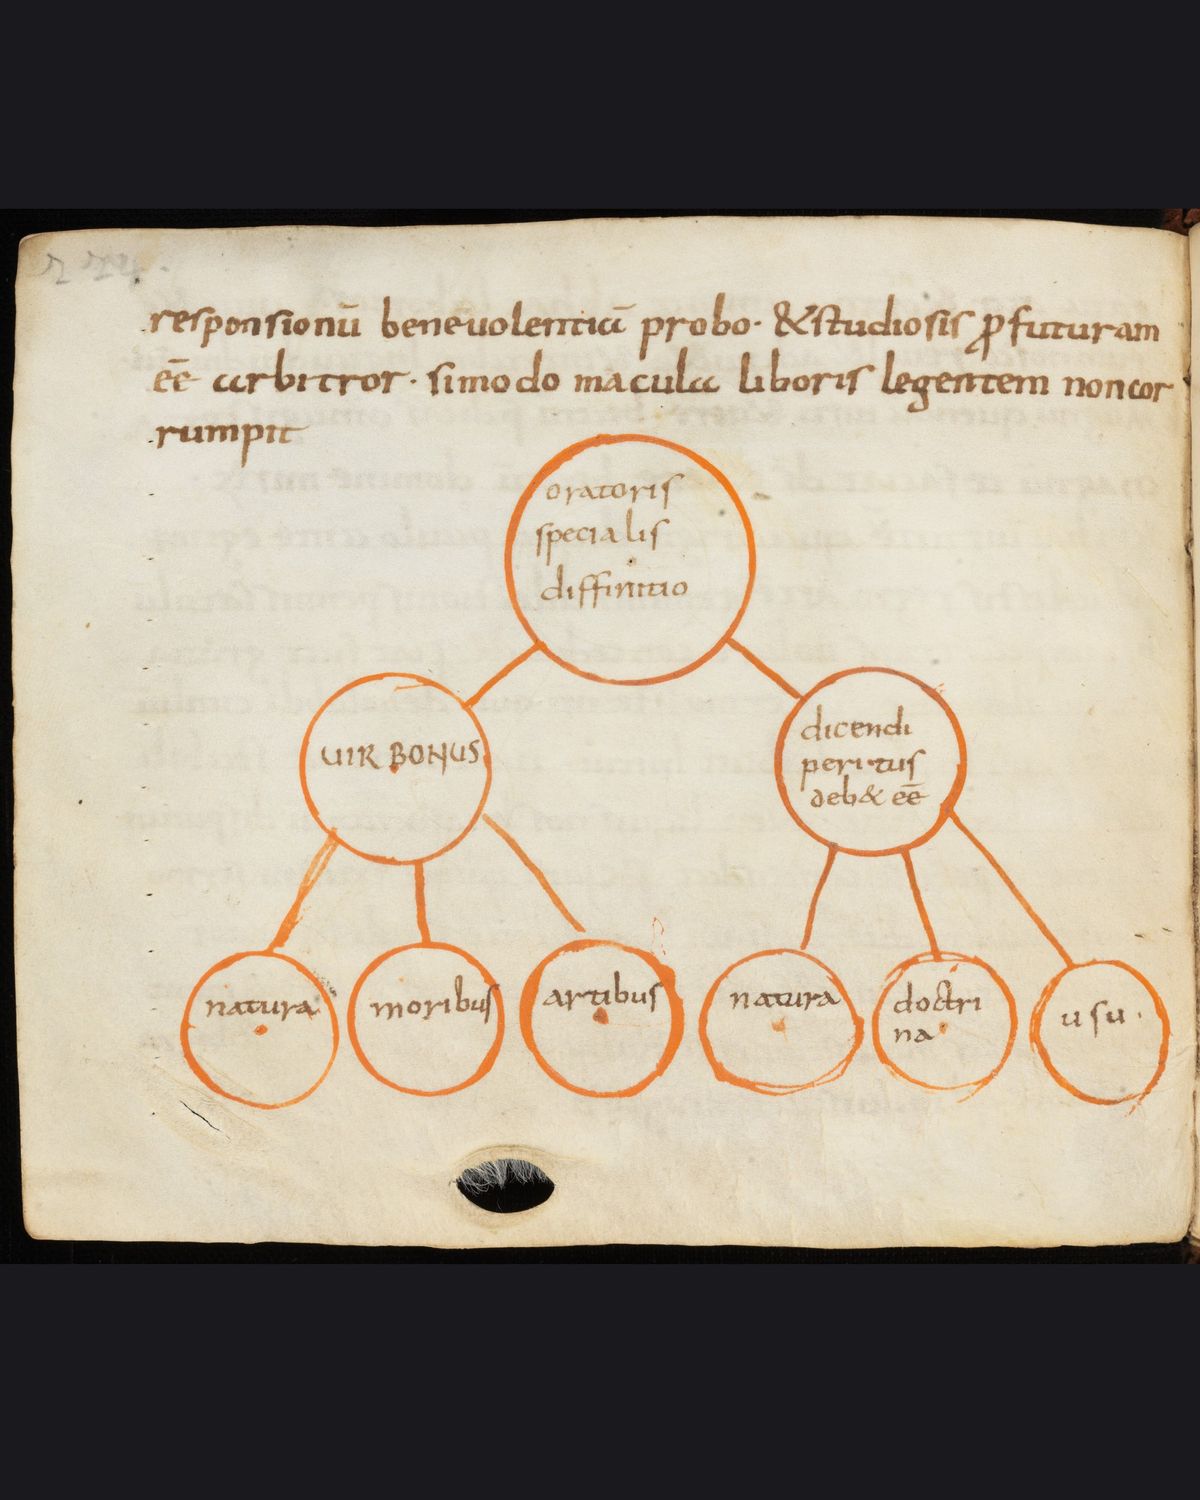 responsionū beneuolentiā probo· &studiosis ꝓfuturam
eē arbitror· simodo macula liboris legentem noncor
rumpit
oratoris
specialis
diffinitio
UIR BONUS
dicendi
peritus
deb& eē
natura
moribus
artibus
natura
doctri
na
usu·